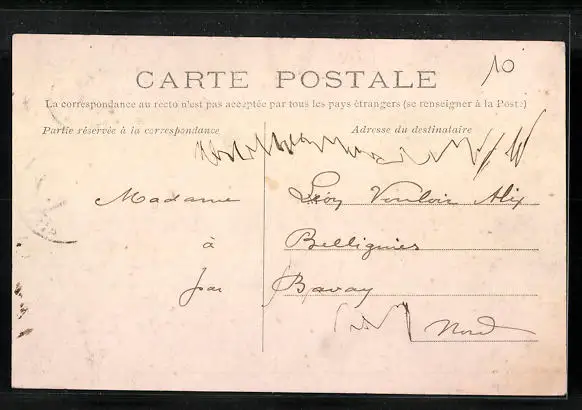 10
CARTE POSTALE
La correspondance au recto n'est pas acceptée par tous les pays étrangers (se renseigner à la Poste)
Partie réservée à la correspondance
Adresse du destinataire
Madame Léon Alix
à Bellignies
par Bavay
Nord